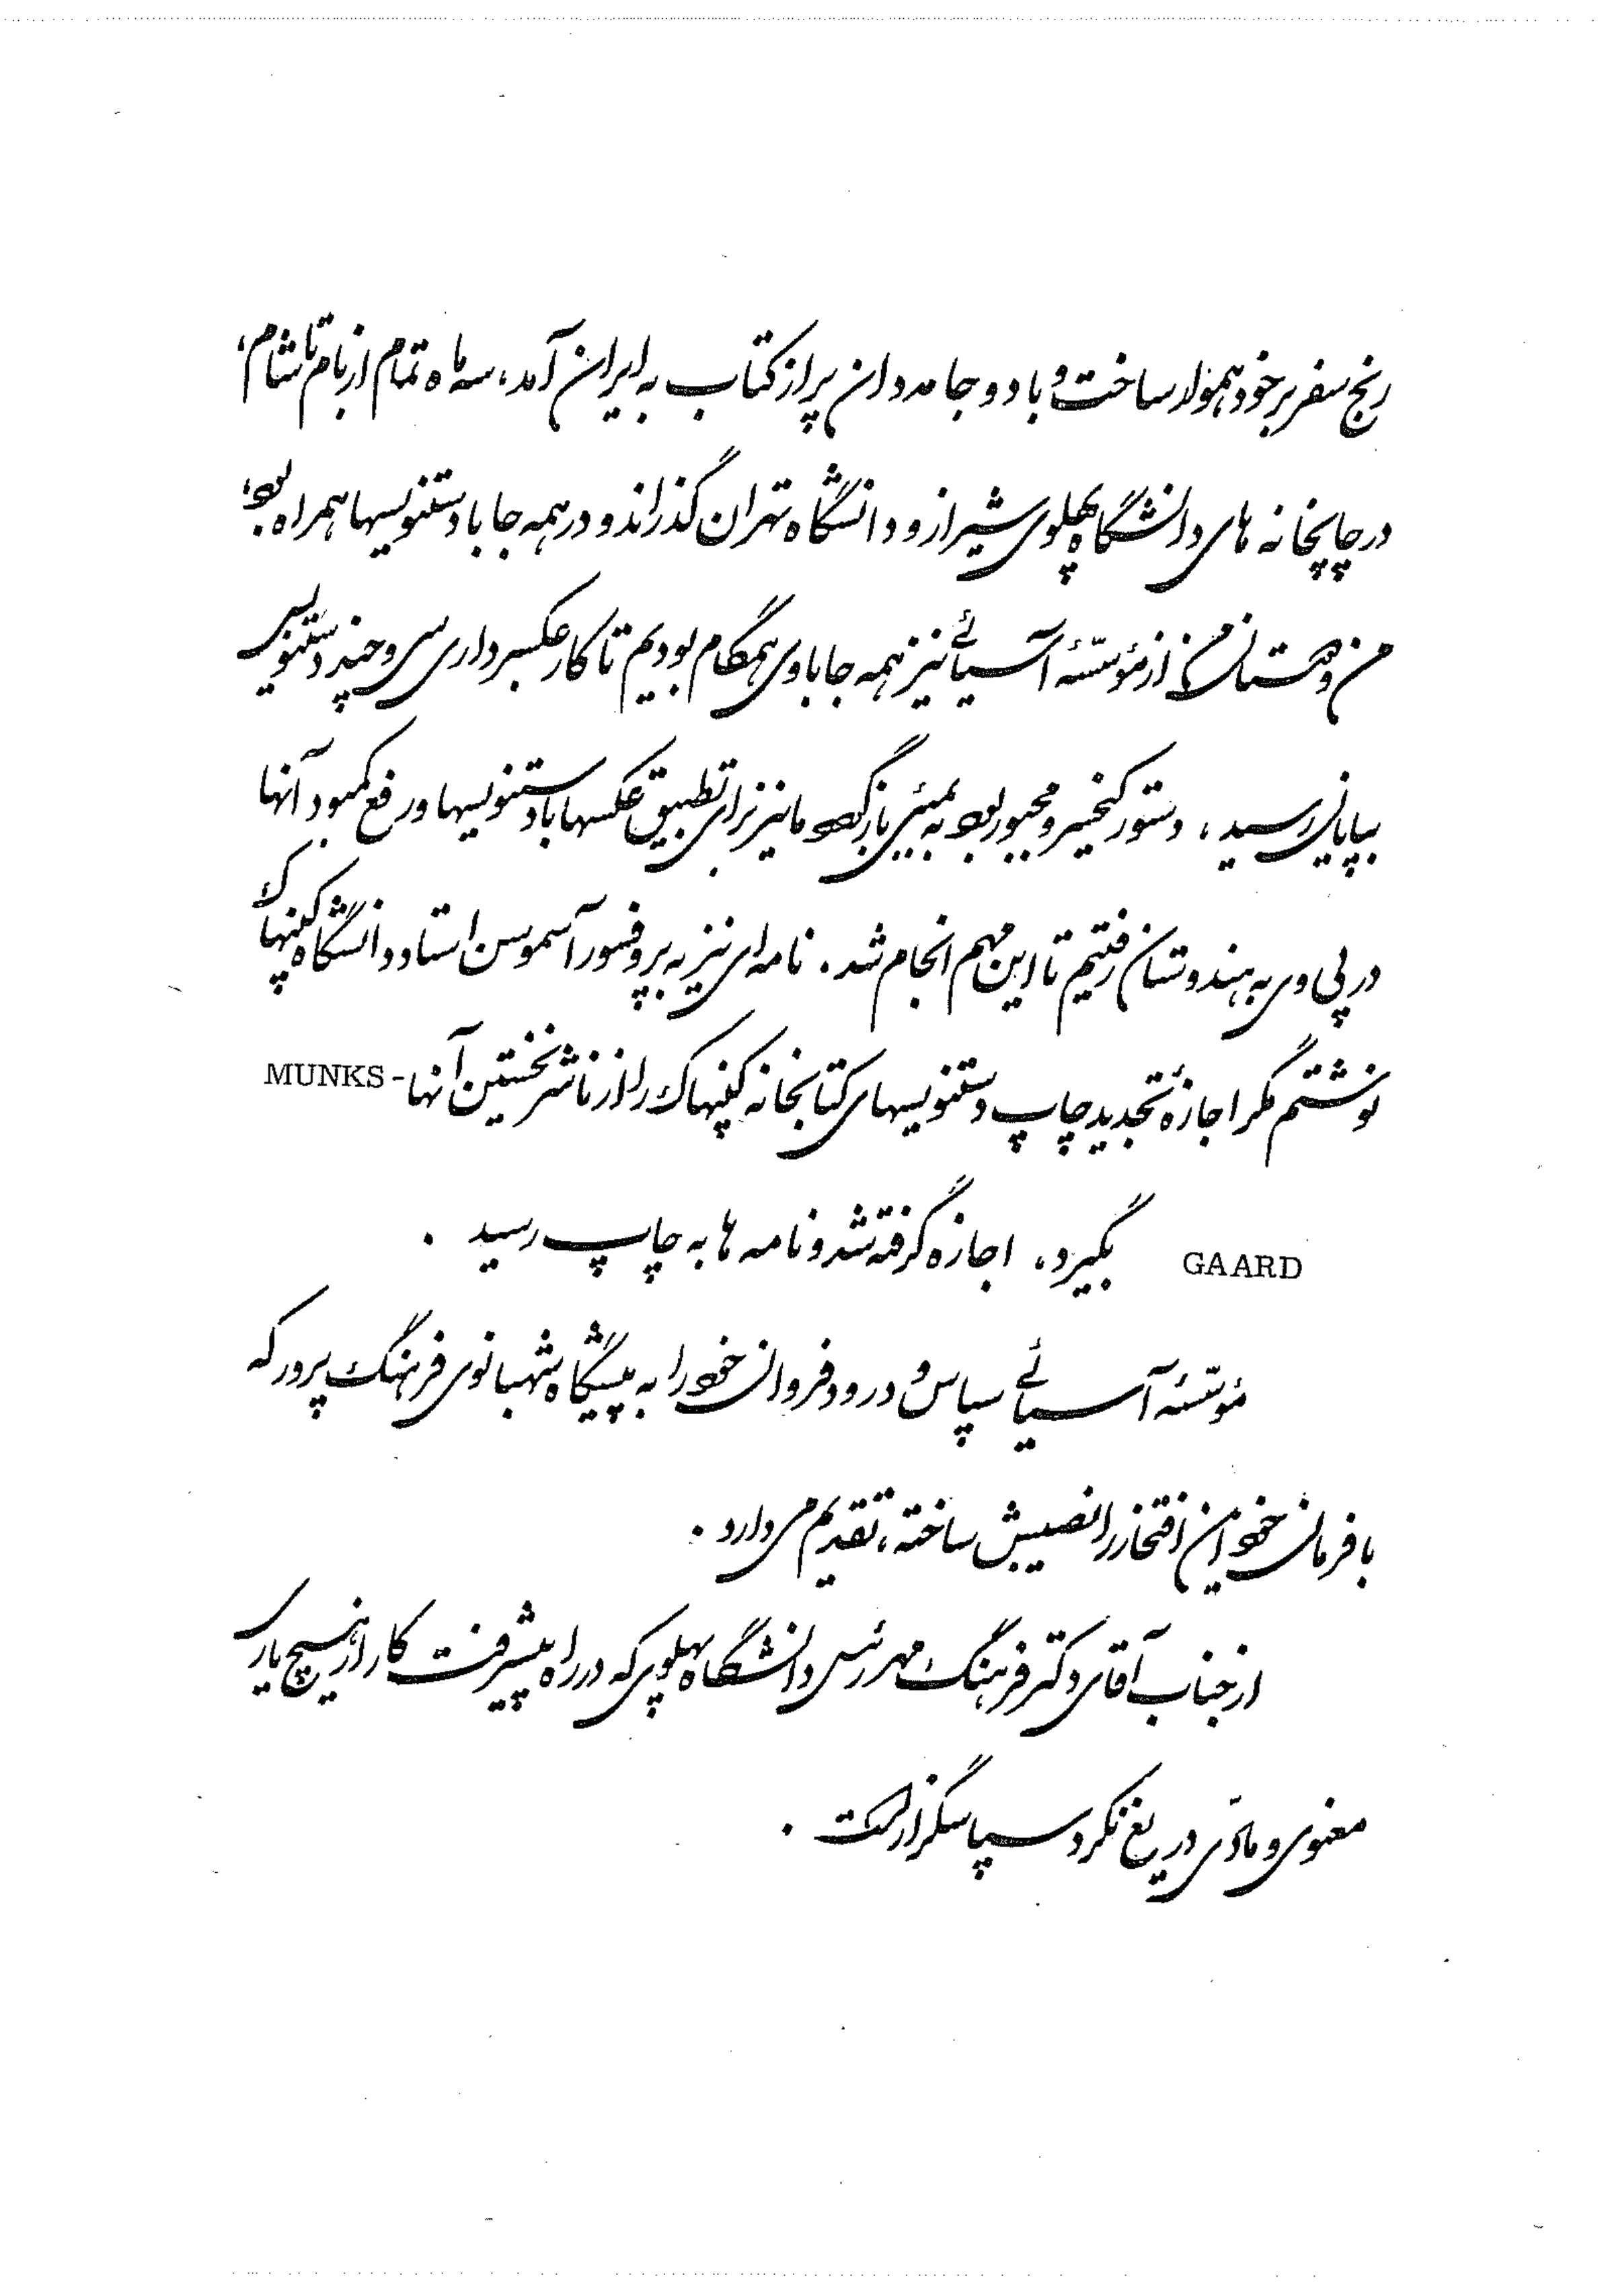 رنج سفر بر خود هموار ساخت و با دو جامه‌دان پر از کتاب به ایران آمد، سه ماه تمام از بام تا شام،
در چاپخانه های دانشگاه پهلوی شیراز و دانشگاه تهران گذراند و در همه جا با دستنویسها همراه بود،
من و از مؤسّسهٔ آسیائی نیز همه جا با وی همگام بودیم تا کار عکسبرداری سی و چند دستنویس
بپایان رسید، دستور کیخسرو مجبور بود به بمبئی باز گردد ما نیز برای تطبیق عکسها با دستنویسها و رفع کمبود آنها
در پی وی به هندوستان رفتیم تا این مهم انجام شد. نامه ای نیز به پروفسور آسموسن استاد دانشگاه کپنهاک
نوشتم مگر اجازهٔ تجدید چاپ دستنویسهای کتابخانه کپنهاک را از ناشر نخستین آنها MUNKS-
GAARD بگیرد، اجازه گرفته شد و نامه ها به چاپ رسید .
مؤسّسهٔ آسیائی سپاس و درود فروان خود را به پیشگاه شهبانوی فرهنگ پرور که
با فرمان خود این افتخار را نصیبش ساخته، تقدیم میدارد .
از جناب آقای دکتر فرهنگ مهر رئیس دانشگاه پهلوی که در راه پیشرفت کار از هیچ یاری
معنوی و مادّی دریغ نکرد سپاسگزار است .